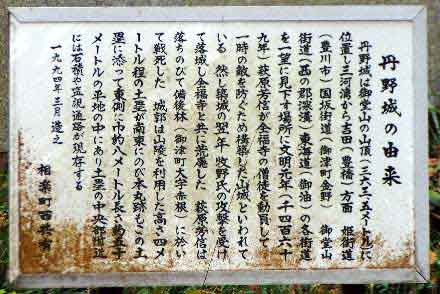 丹野城の由来
丹野城は御堂山の山頂(三六三・五メートル)に
位置し三河湾から吉田(豊橋)方面 姫街道
(豊川市)国坂街道(御津町金野) 御堂山
街道(西の郡深溝)東海道(御油)の各街道
を一望に見下す場所に文明元年(一千四百六十
九年)萩原芳信が全福寺の僧徒を動員して
一時の敵を防ぐため構築した山城といわれて
いる 然し築城の翌年 牧野氏の攻撃を受け
て落城し全福寺と共に焼魔した 萩原芳信は
落ちのびて備後林(御津町大字赤根)に於い
て戦死した 城郭は山陵を利用した高さ四メ
ートル程の土塁が南東にのび本丸跡もこの土
塁に添って東側に巾約八メートル長さ約五十
メートルの平地の中にあり土塁の中央部附近
には石積や監視通路が現存する
一九九四年三月 造之
相楽町西